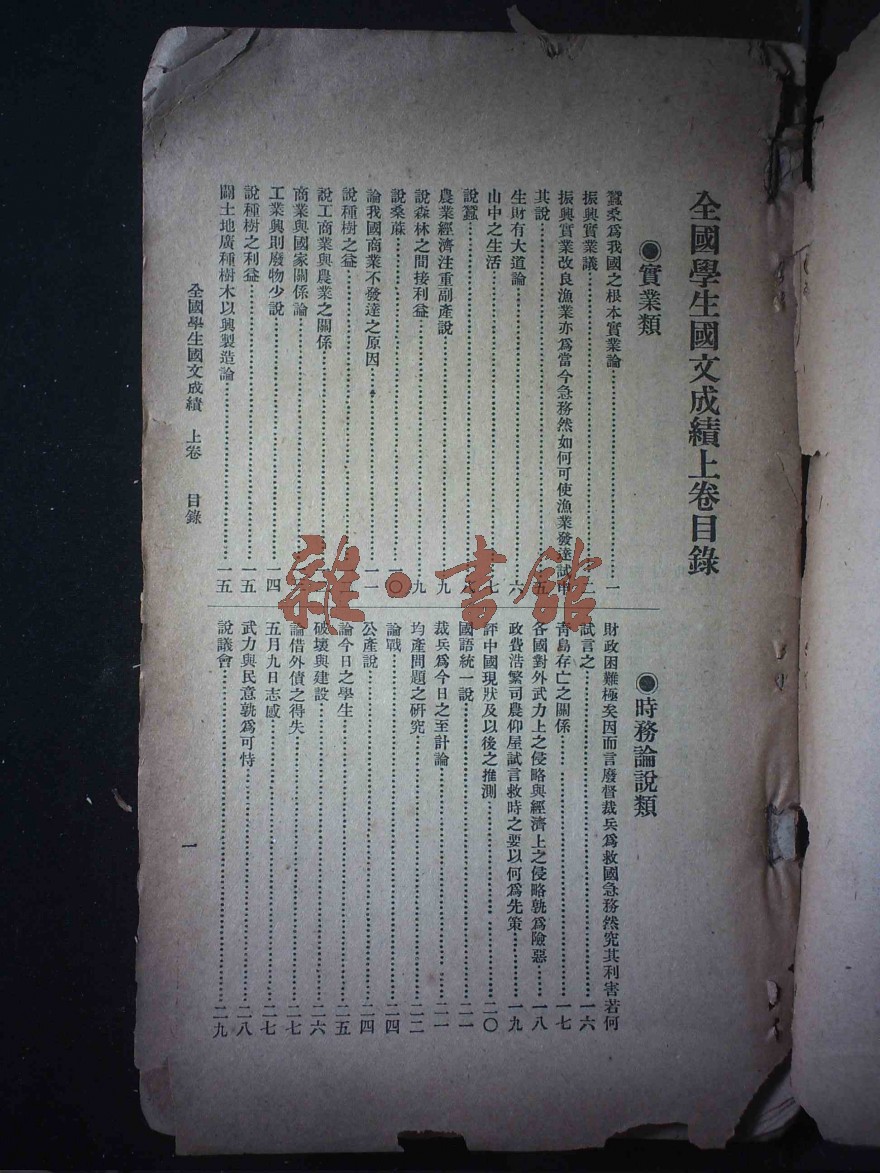 全國學生國文成績上卷目錄
◉實業類
蠶桑爲我國之根本實業論……一
振興實業議……二
振興實業改良漁業亦爲當今急務然如何可使漁業發達試申
其說……五
生財有大道論……六
山中之生活……七
說蠶……八
農業經濟注重副產說……九
說森林之間接利益……九
說桑蔴……一〇
論我國商業不發達之原因……一一
說種樹之益……
說工商業與農業之關係……
商業與國家關係論……
工業興則廢物少說……一四
說種樹之利益……一五
闢土地廣種樹木以興製造論……一五
◉時務論說類
財政困難極矣因而言廢督裁兵爲救國急務然究其利害若何
試言之……一六
靑島存亡之關係……一七
各國對外武力上之侵略與經濟上之侵略孰爲險惡……一八
政費浩繁司農仰屋試言救時之要以何爲先策……一九
評中國現狀及以後之推測……二〇
國語統一說……二一
裁兵爲今日之至計論……二一
均產問題之硏究……二二
論戰……二四
公產說……二四
論今日之學生……二五
破壞與建設……二六
論借外債之得失……二七
五月九日志感……二七
武力與民意孰爲可恃……二八
說議會……二九
全國學生國文成績 上卷 目錄
一
雜·書館